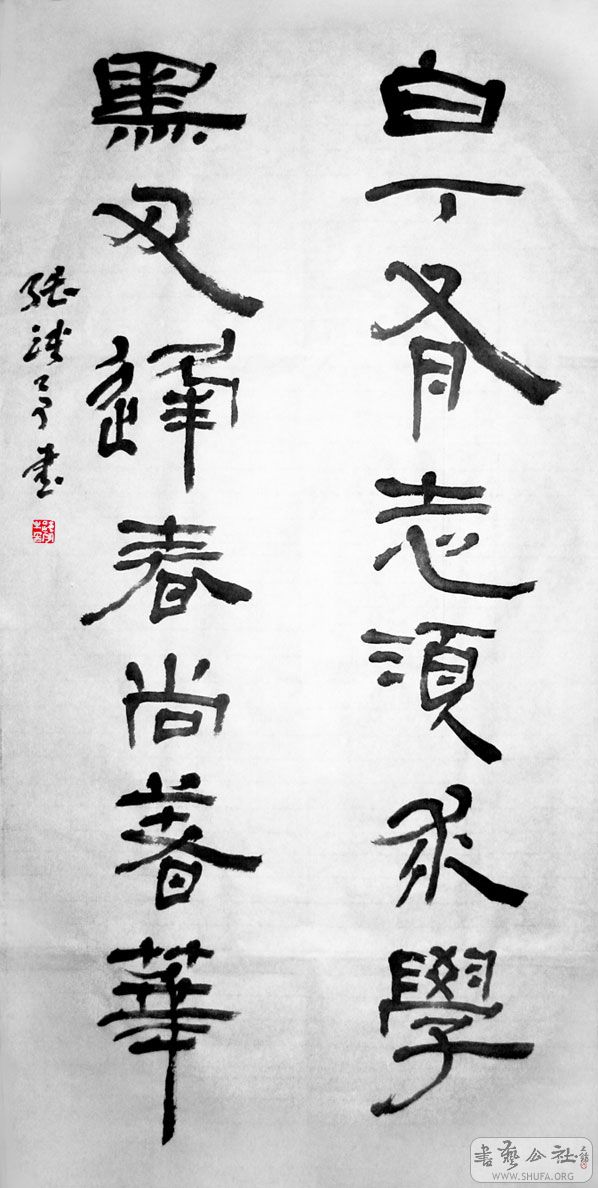 白丁有志須求學
黑逢春尚著華
張書
書藝公社
WWW.SHUFA.ORG